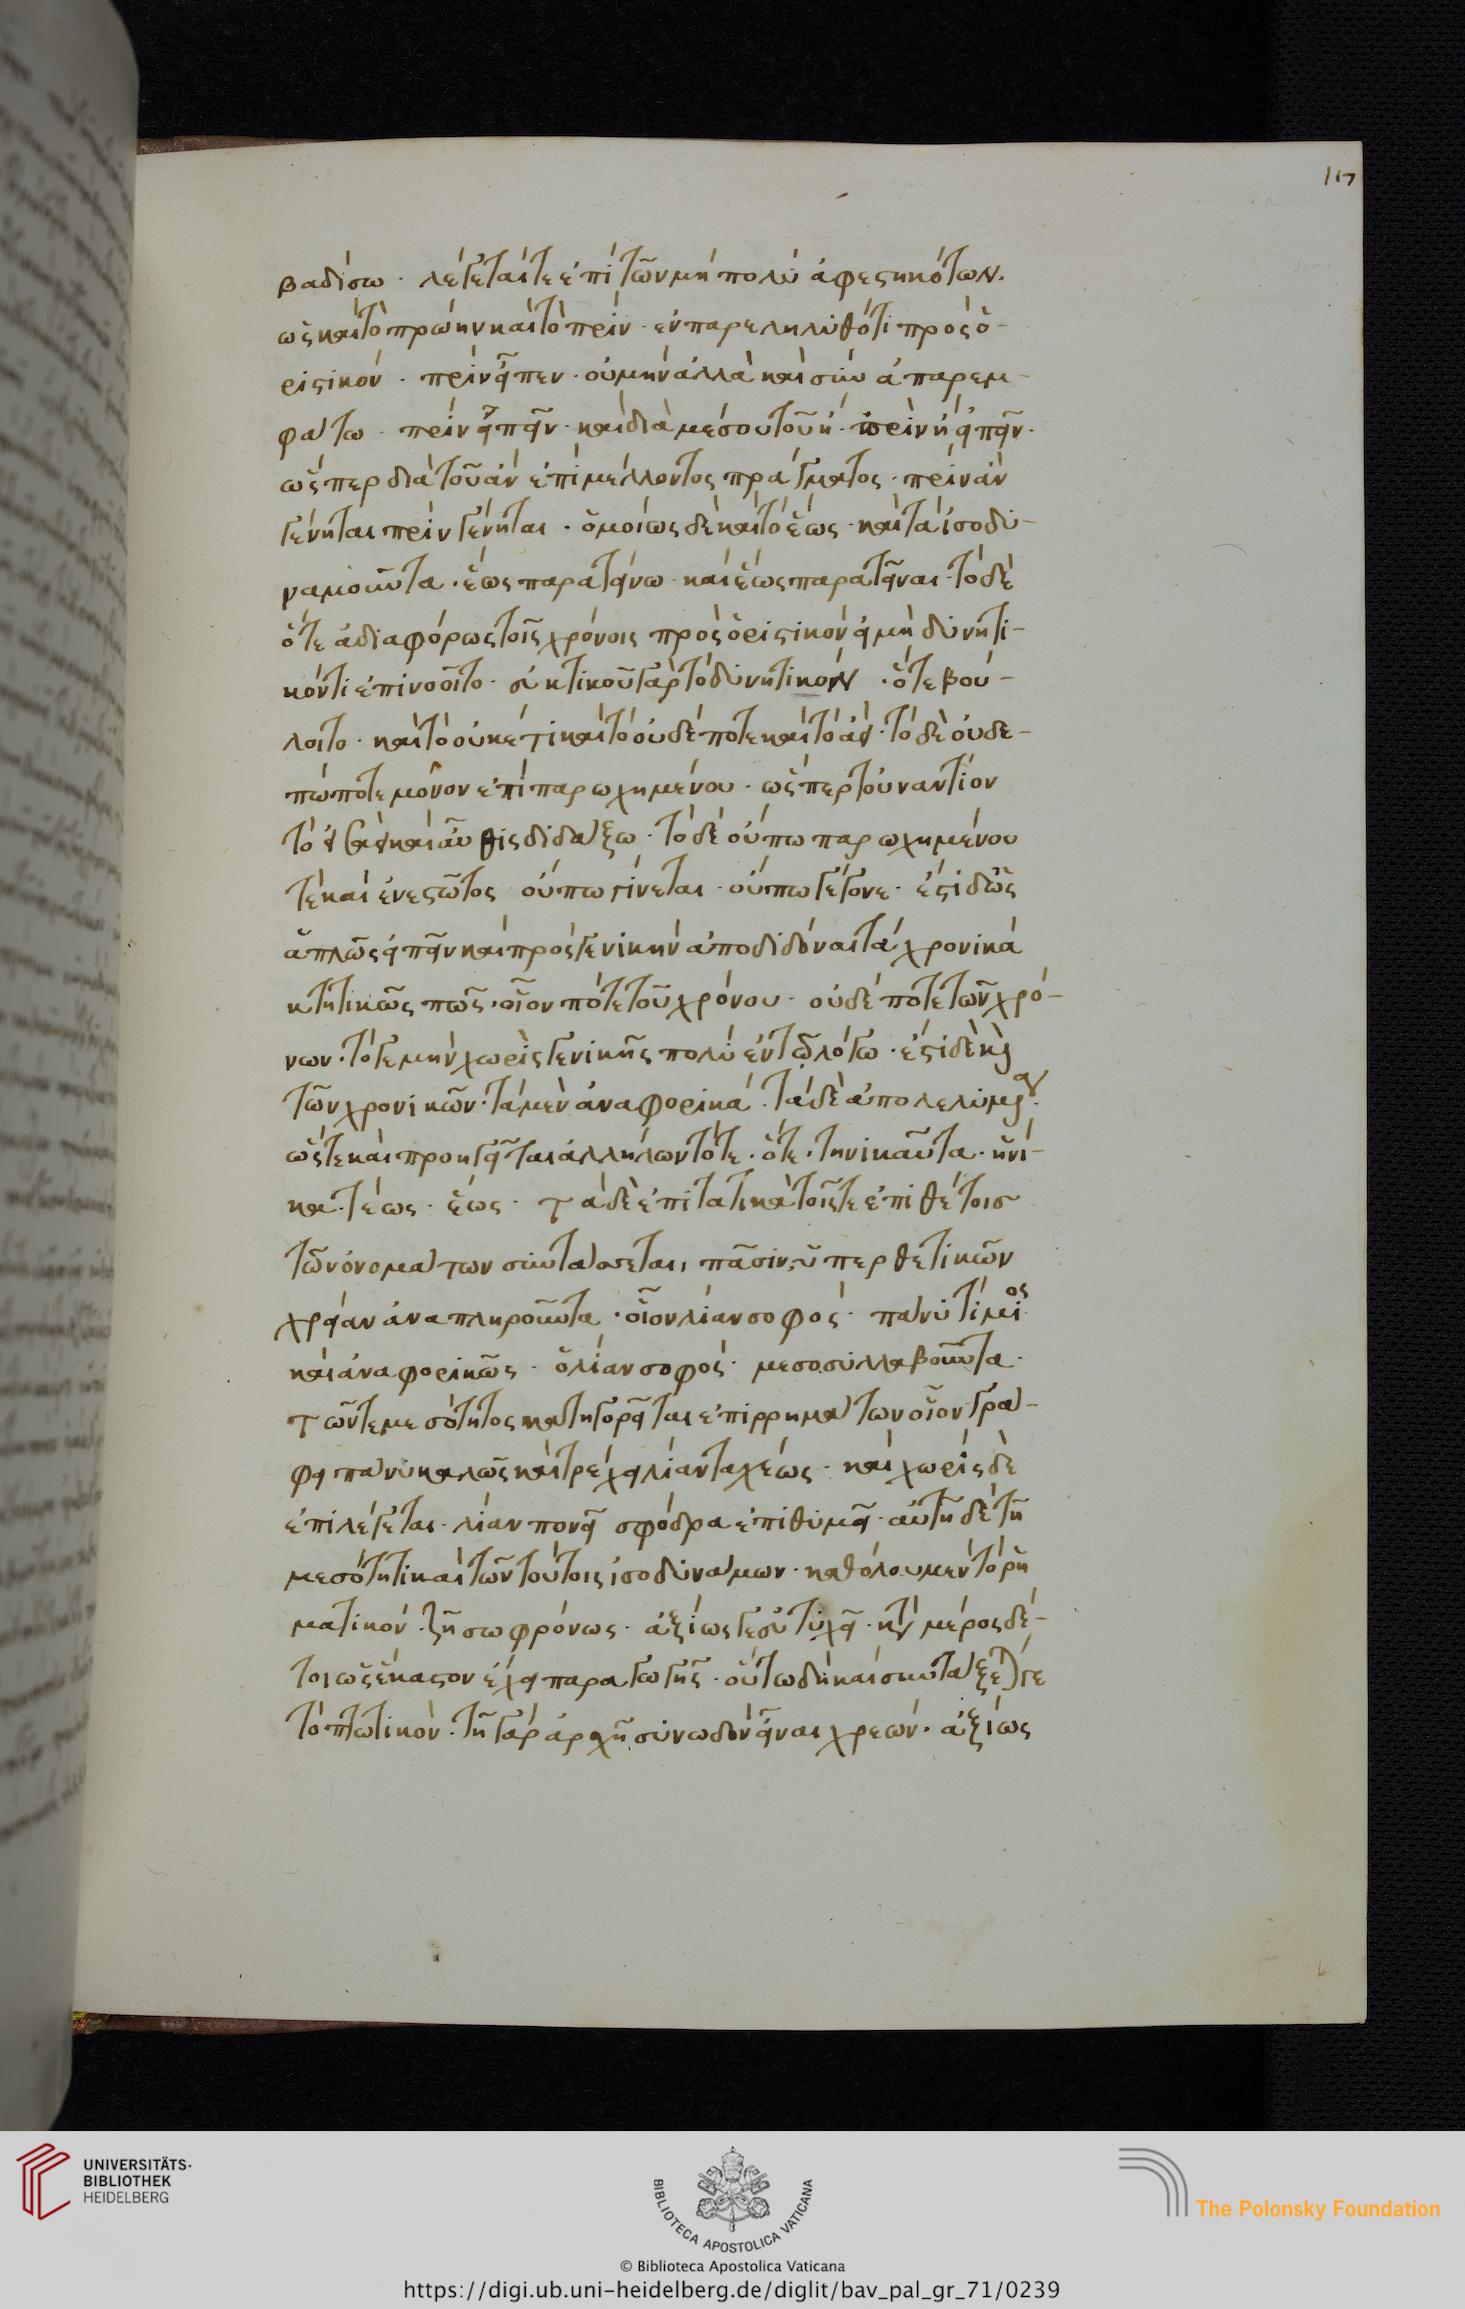 117
βαδίσω · λέγεταί τε ἐπὶ τῶν μὴ πολὺ ἀφεστηκότων.
ὡς καὶ τὸ πρώην καὶ τὸ πρίν · ἐν παρεληλυθότι πρὸς ὁ-
ριστικόν · πρὶν εἶπεν · οὐ μὴν ἀλλὰ καὶ σὺν ἀπαρεμ-
φάτω · πρὶν εἰπεῖν · καὶ διὰ μέσου τοῦ ἢ · πρὶν ἢ εἰπεῖν ·
ὥσπερ διὰ τοῦ ἂν ἐπὶ μέλλοντος πράγματος · πρὶν ἂν
γένηται πρὶν γένηται · ὁμοίως δὲ καὶ τὸ ἕως · καὶ τὰ ἰσοδυ-
ναμοῦντα · ἕως παρατείνω · καὶ ἕως παρατεῖναι · τὸ δὲ
ὅτε ἀδιαφόρως τοῖς χρόνοις πρὸς ὁριστικὸν εἰ μὴ δυνητι-
κόν τι ἐπινοοῖτο · εὐκτικοῦ γὰρ τὸ δυνητικόν · ὅτε βού-
λοιτο · καὶ τὸ οὐκέτι καὶ τὸ οὐδέποτε καὶ τὸ ἀεί · τὸ δὲ οὐδε-
πώποτε μόνον ἐπὶ παρωχημένου · ὥσπερ τοὐναντίον
τὸ καὶ αὖθις διδάξω · τὸ δὲ οὔπω παρωχημένου
τὲ καὶ ἐνεστῶτος οὔπω γίνεται · οὔπω γέγονε · ἔστι δ' ὡς
ἁπλῶς εἰπεῖν καὶ πρὸς γενικὴν ἀποδιδόναι τὰ χρονικὰ
κτητικῶς πῶς · οἷον πότε τοῦ χρόνου · οὐδέποτε τῶν χρό-
νων · τό γε μὴν χωρὶς γενικῆς πολὺ ἐν τῷ λόγω · ἔστι δὲ κὶ
τῶν χρονικῶν · τὰ μὲν ἀναφορικά · τὰ δὲ ἀπολελυμένα ·
ὥστε καὶ προηγεῖται ἀλλήλων τότε · ὅτε · τηνικαῦτα · ἡνί-
κα · τέως · ἕως · τὰ δὲ ἐπιτατικὰ τοῖς τε ἐπιθέτοις
τῶν ὀνομάτων συντάσσεται, πᾶσιν, ὑπερθετικῶν
χρείαν ἀναπληροῦντα · οἷον λίαν σοφός · πάνυ τίμιος
καὶ ἀναφορικῶς · ὁ λίαν σοφός · μεσοσυλλαβοῦντα ·
τῶν τε μεσότητος κατηγορεῖται ἐπιρρημάτων οἷον γρά-
φει πάνυ καλῶς καὶ τρέχει λίαν ταχέως · καὶ χωρὶς δὲ
ἐπιλέγεται · λίαν πονεῖ σφόδρα ἐπιθυμεῖ · αὐτῆ δὲ τῆ
μεσότητι καὶ τῶν τούτοις ἰσοδυνάμων · καθόλου μὲν τὸ ῥη
ματικόν · ζῆ σωφρόνως · ἀξίως γε εὐτυχεῖ · κατὰ μέρος δέ-
τοι ὡς ἕκαστον ἔχει παραγωγῆς · οὕτω δὴ καὶ συντάξεται
τὸ πτωτικόν · τῆ γὰρ ἀρχῆ συνωδὸν εἶναι χρεών · ἀξίως
UNIVERSITÄTS-
BIBLIOTHEK
HEIDELBERG
BIBLIOTECA APOSTOLICA VATICANA
The Polonsky Foundation
© Biblioteca Apostolica Vaticana
https://digi.ub.uni-heidelberg.de/diglit/bav_pal_gr_71/0239